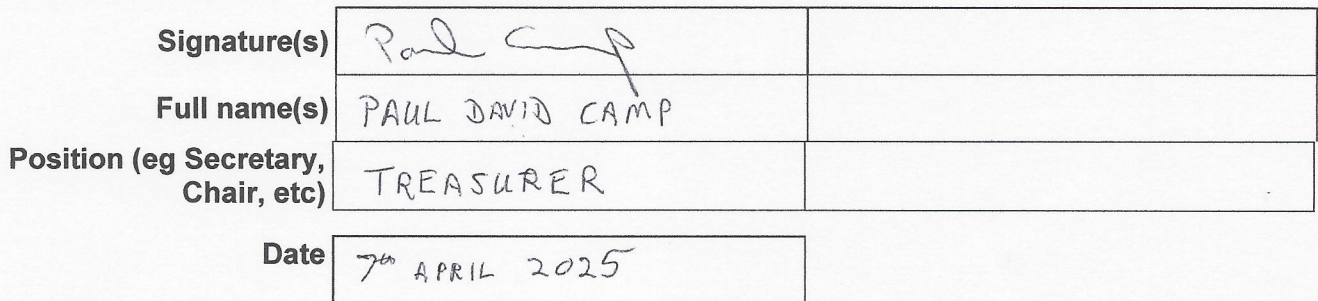 Signature(s) Paul Camp
Full name(s) PAUL DAVID CAMP
Position (eg Secretary,
Chair, etc) TREASURER
Date 7th APRIL 2025